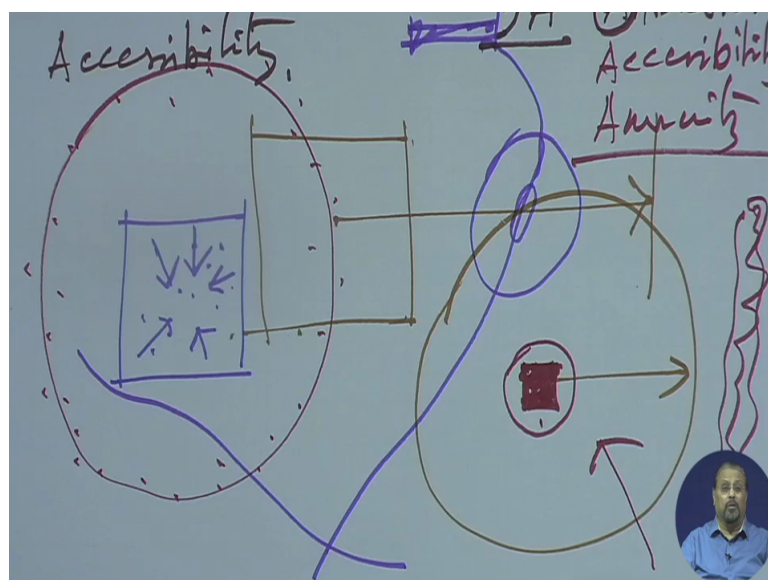 Accesibility
A
Accesibilit
Amenity